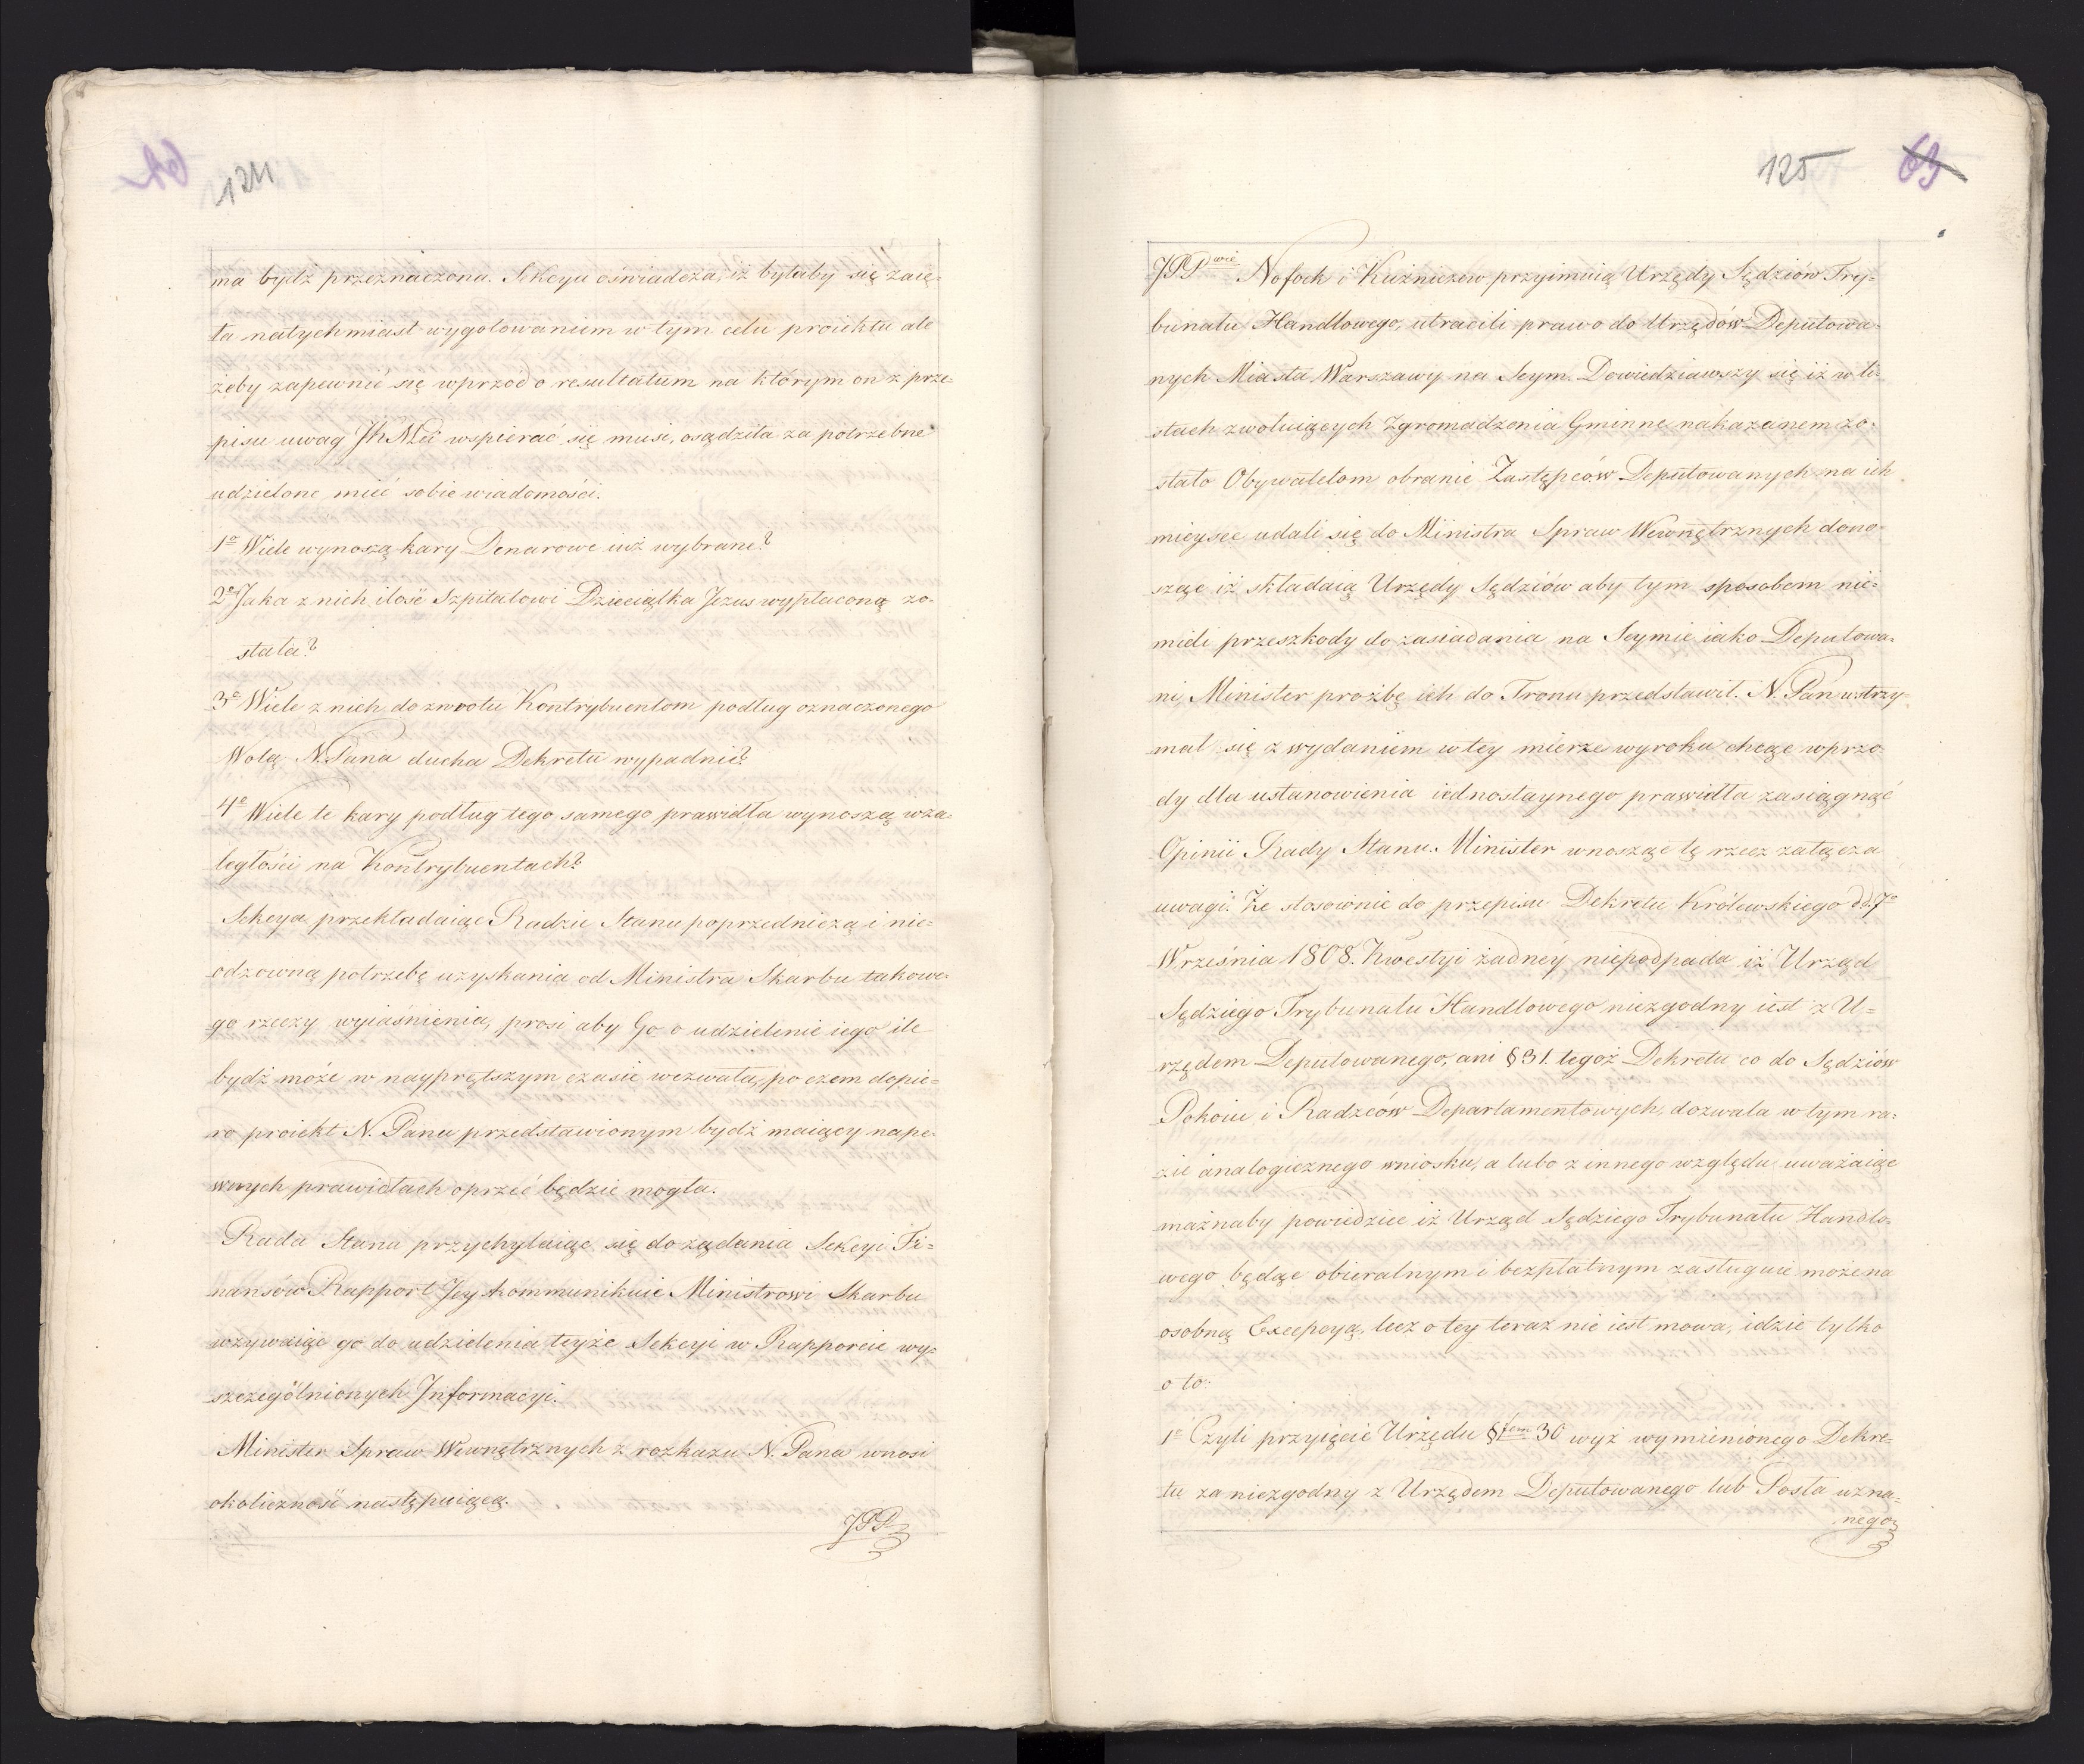 124
ma bydź przeznaczona. Sekcya oświadcza, iż byłaby się zaię-
ła natychmiast wygotowaniem w tym celu proiektu ale
żeby zapewnić się wprzód o resultatum na którym on z prze-
pisu uwag JKMci wspierać się musi, osądziła za potrzebne
udzielone mieć sobie wiadomości.
1o Wiele wynoszą kary Denarowe iuż wybrane?
2o Jaka z nich ilość Szpitalowi Dzieciątka Jezus wypłaconą zo-
stała?
3o Wiele z nich do zwrotu Kontrybuentom podług oznaczonego
Wolą N. Pana ducha Dekretu wypadnie?
4o Wiele te kary podług tego samego prawidła wynoszą w za-
ległości na Kontrybuentach?
Sekcya przekładaiąc Radzie Stanu poprzedniczą i nie-
odzowną potrzebę uzyskania od Ministra Skarbu takowe-
go rzeczy wyiaśnienia, prosi aby Go o udzielenie iego ile
bydź może w nayprętszym czasie wezwała, po czem dopie-
ro proiekt N. Panu przedstawionym bydź maiący na pe-
wnych prawidłach oprzeć będzie mogła.
Rada Stanu przychylaiąc się do żądania Sekcyi Fi-
nansów Rapport Jey kommunikuie Ministrowi Skarbu
wzywaiąc go do udzielenia teyże Sekcyi w Rapporcie wy-
szczególnionych Informacyi.
Minister Spraw Wewnętrznych z rozkazu N. Pana wnosi
okoliczność następuiącą.
JPP
125 63
JPPwie Nofock i Kuźniczew przyimuią Urzędy Sędziów Try-
bunału Handlowego, utracili prawo do Urzędów Deputowa-
nych Miasta Warszawy na Seym. Dowiedziawszy się iż w li-
stach zwołuiących Zgromadzenia Gminne nakazanem zo-
stało Obywatelom obranie Zastępców Deputowanych na ich
mieysce udali się do Ministra Spraw Wewnętrznych dono-
sząc iż składaią Urzędy Sędziów aby tym sposobem nie-
mieli przeszkody do zasiadania na Seymie iako Deputowa-
ni, Minister proźbę ich do Tronu przedstawił. N. Pan wstrzy-
mał się z wydaniem w tey mierze wyroku chcąc wprzo-
dy dla ustanowienia iednostaynego prawidła zasiągnąć
Opinii Rady Stanu. Minister wnosząc tę rzecz załącza
uwagi: Że stosownie do przepisu Dekretu Królewskiego dd. 7o
Września 1808. Kwestyi żadney niepodpada iż Urząd
Sędziego Trybunału Handlowego niezgodny iest z U-
rzędem Deputowanego, ani § 31. tegoż Dekretu co do Sędziów
Pokoiu i Radzców Departamentowych, dozwala w tym ra-
zie analogicznego wniosku, a lubo z innego względu uważaiąc
możnaby powiedzieć iż Urząd Sędziego Trybunału Handlo-
wego będąc obieralnym i bezpłatnym zasługuie może na
osobną Excepcyą, lecz o tey teraz nie iest mowa, idzie tylko
o to:
1o Czyli przyięcie Urzędu §fem 30 wyż wymienionego Dekre-
tu za niezgodny z Urzędem Deputowanego lub Posła uzna-
nego